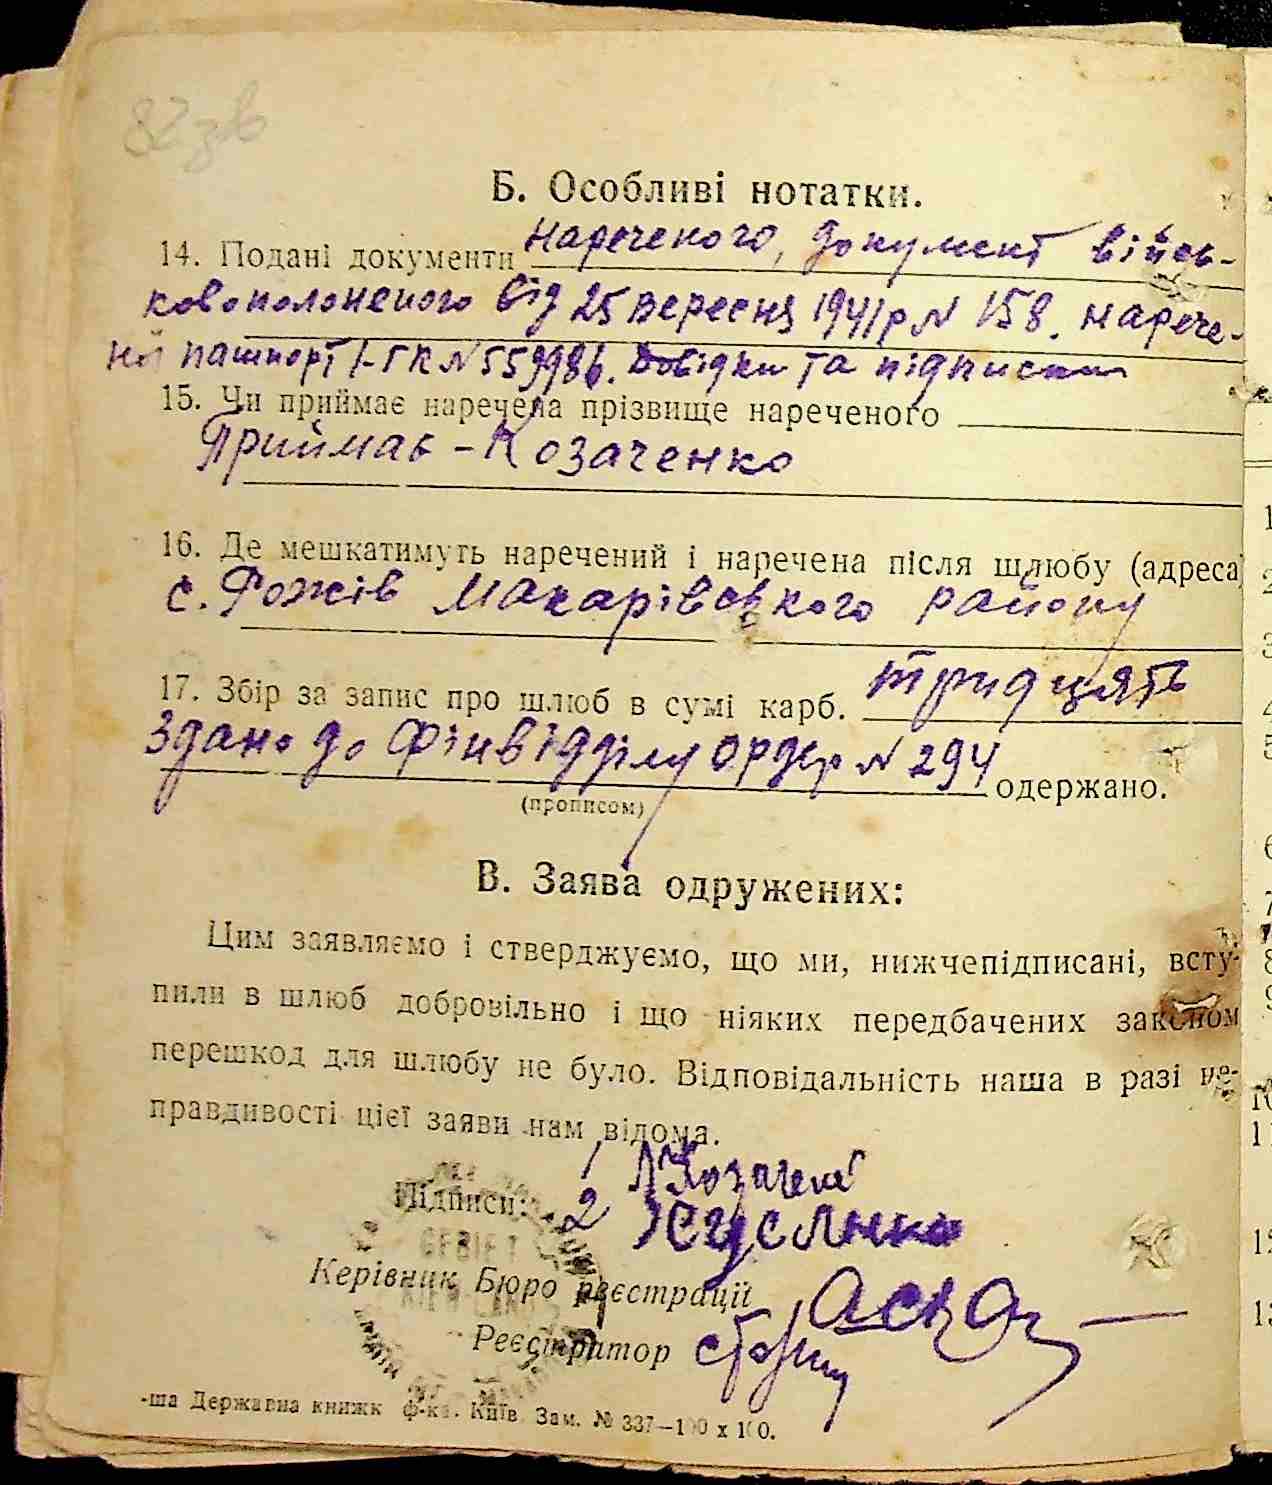 82 зв
Б. Особливі нотатки.
14. Подані документи Нареченого, документ військ-
ковополоненого від 25 вересня 1941 р № 158. нарече-
ної пашпорт І-ГК № 559986. Довідки та підписки
15. Чи приймає наречена прізвище нареченого
Приймає - Козаченко
16. Де мешкатимуть наречений і наречена після шлюбу (адреса)
с. Рожів Макарівського району
17. Збір за запис про шлюб в сумі карб. тридцять
Здано до Фінвідділу ордер № 294 одержано.
(прописом)
В. Заява одружених:
Цим заявляємо і стверджуємо, що ми, нижчепідписані, всту-
пили в шлюб добровільно і що ніяких передбачених законом
перешкод для шлюбу не було. Відповідальність наша в разі не-
правдивості цієї заяви нам відома.
Підписи: 1 Козаченк
2
GEBIET
KIEW LAND
Керівник Бюро реєстрації
Реєстратор
-ша Державна книжк ф-ка. Київ. Зам. № 337—100 х 100.